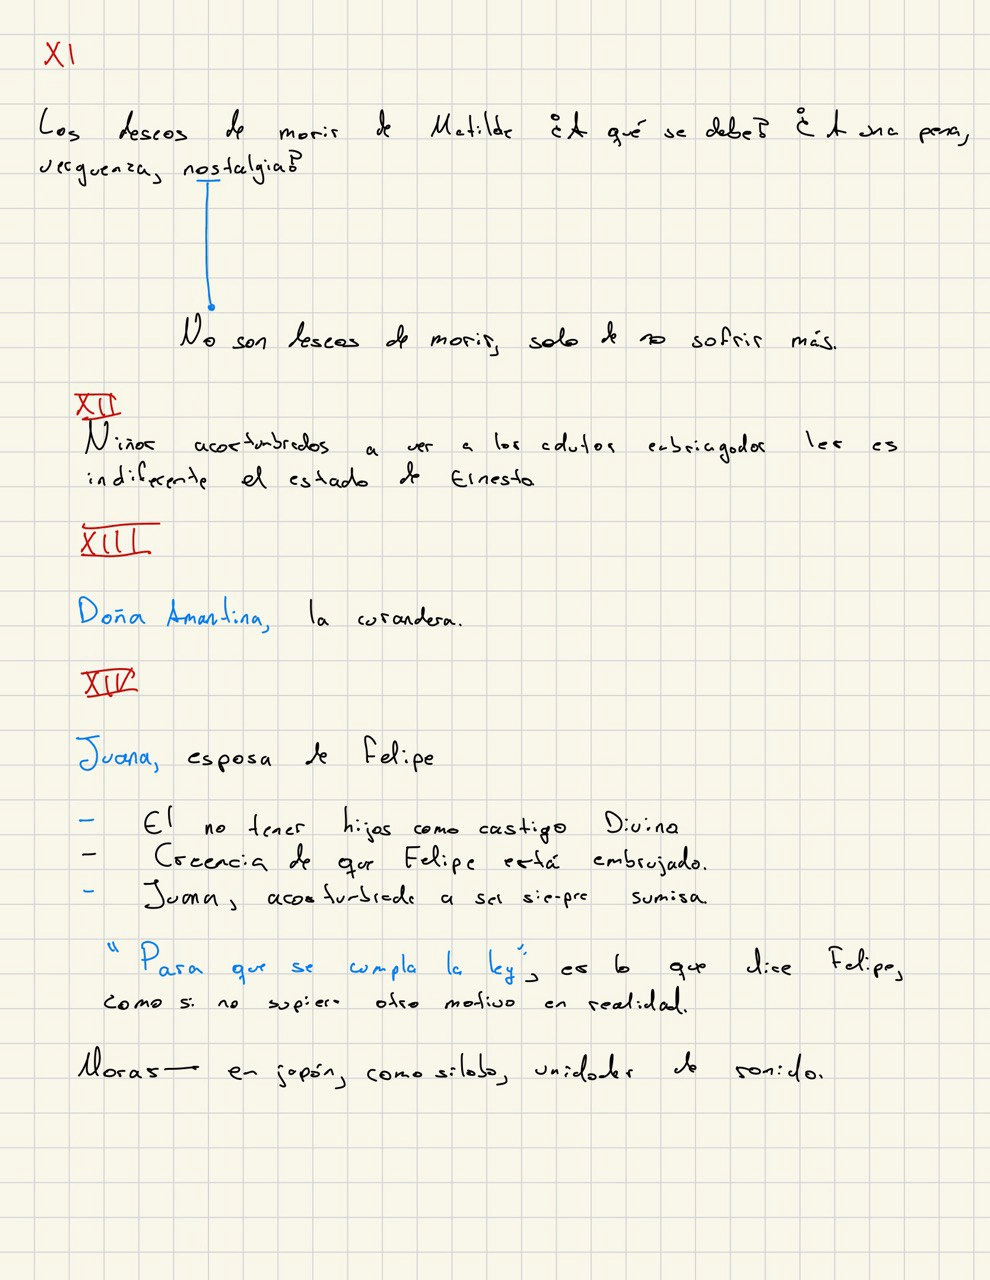 XI
Los deseos de morir de Matilde ¿A qué se debe? ¿A una pena,
verguenza, nostalgia?
No son deseos de morir, solo de no sofrir más.
XII
Niños acostumbrados a ver a los adultos embriagados les es
indiferente el estado de Ernesto
XIII
Doña Amantina, la curandera.
XIV
Juana, esposa de Felipe
- El no tener hijos como castigo Divino
- Creencia de que Felipe está embrujado.
- Juana, acostumbrada a ser siempre sumisa.
"Para que se cumpla la ley", es lo que dice Felipe,
como si no supiera otro motivo en realidad.
Moras — en japón, como silaba, unidades de sonido.